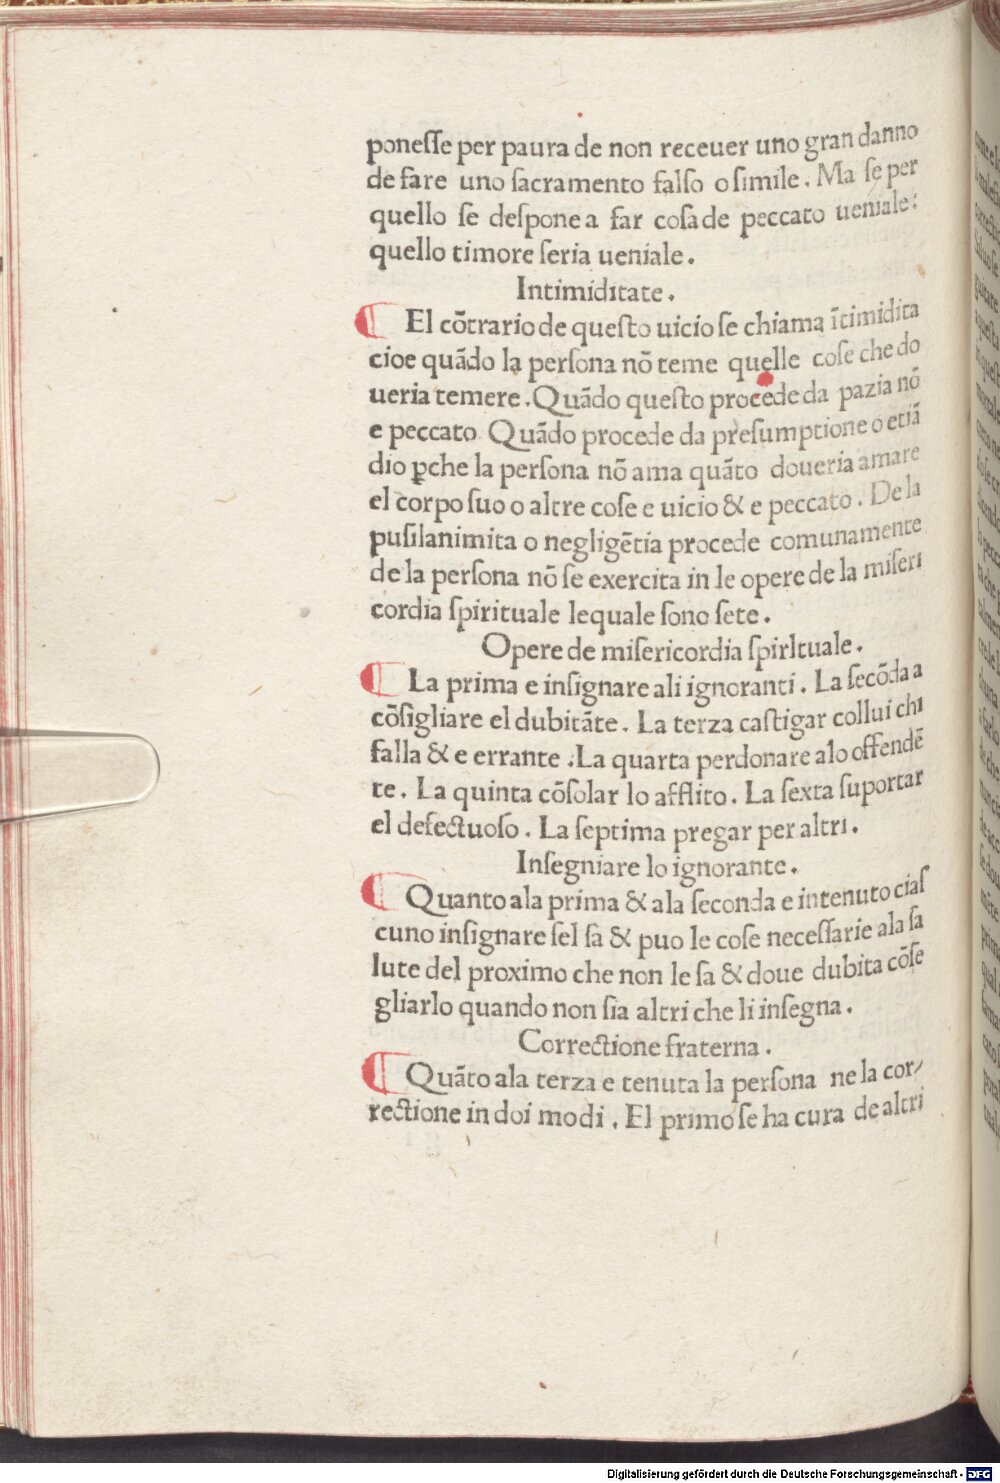 poneſſe per paura de non receuer uno gran danno
de fare uno ſacramento falſo o ſimile. Ma ſe per
quello ſe deſpone a far coſa de peccato ueniale:
quello timore ſeria ueniale.
Intimiditate.
¶ El cõtrario de queſto uicio ſe chiama ĩtimidita
cioe quãdo la perſona nõ teme quelle coſe che do
ueria temere. Quãdo queſto procede da pazia nõ
e peccato Quãdo procede da preſumptione o etiã
dio ꝑche la perſona nõ ama quãto doueria amare
el corpo suo o altre coſe e uicio & e peccato. De la
puſilanimita o negligẽtia procede comunamente
de la perſona nõ ſe exercita in le opere de la miſeri
cordia ſpirituale lequale ſono ſete.
Opere de miſericordia ſpirltuale.
¶ La prima e inſignare ali ignoranti. La ſecõda a
cõſigliare el dubitãte. La terza caſtigar collui chi
falla & e errante. La quarta perdonare alo offendẽ
te. La quinta cõſolar lo afflito. La ſexta ſuportar
el defectuoſo. La ſeptima pregar per altri.
Inſegniare lo ignorante.
¶ Quanto ala prima & ala ſeconda e intenuto ciaſ
cuno inſignare ſel ſa & puo le coſe neceſſarie ala ſa
lute del proximo che non le ſa & doue dubita cõſe
gliarlo quando non ſia altri che li inſegna.
Correctione fraterna.
¶ Quãto ala terza e tenuta la perſona ne la cor/
rectione in doi modi. El primo ſe ha cura de altri
Digitalisierung gefördert durch die Deutsche Forschungsgemeinschaft - DFG